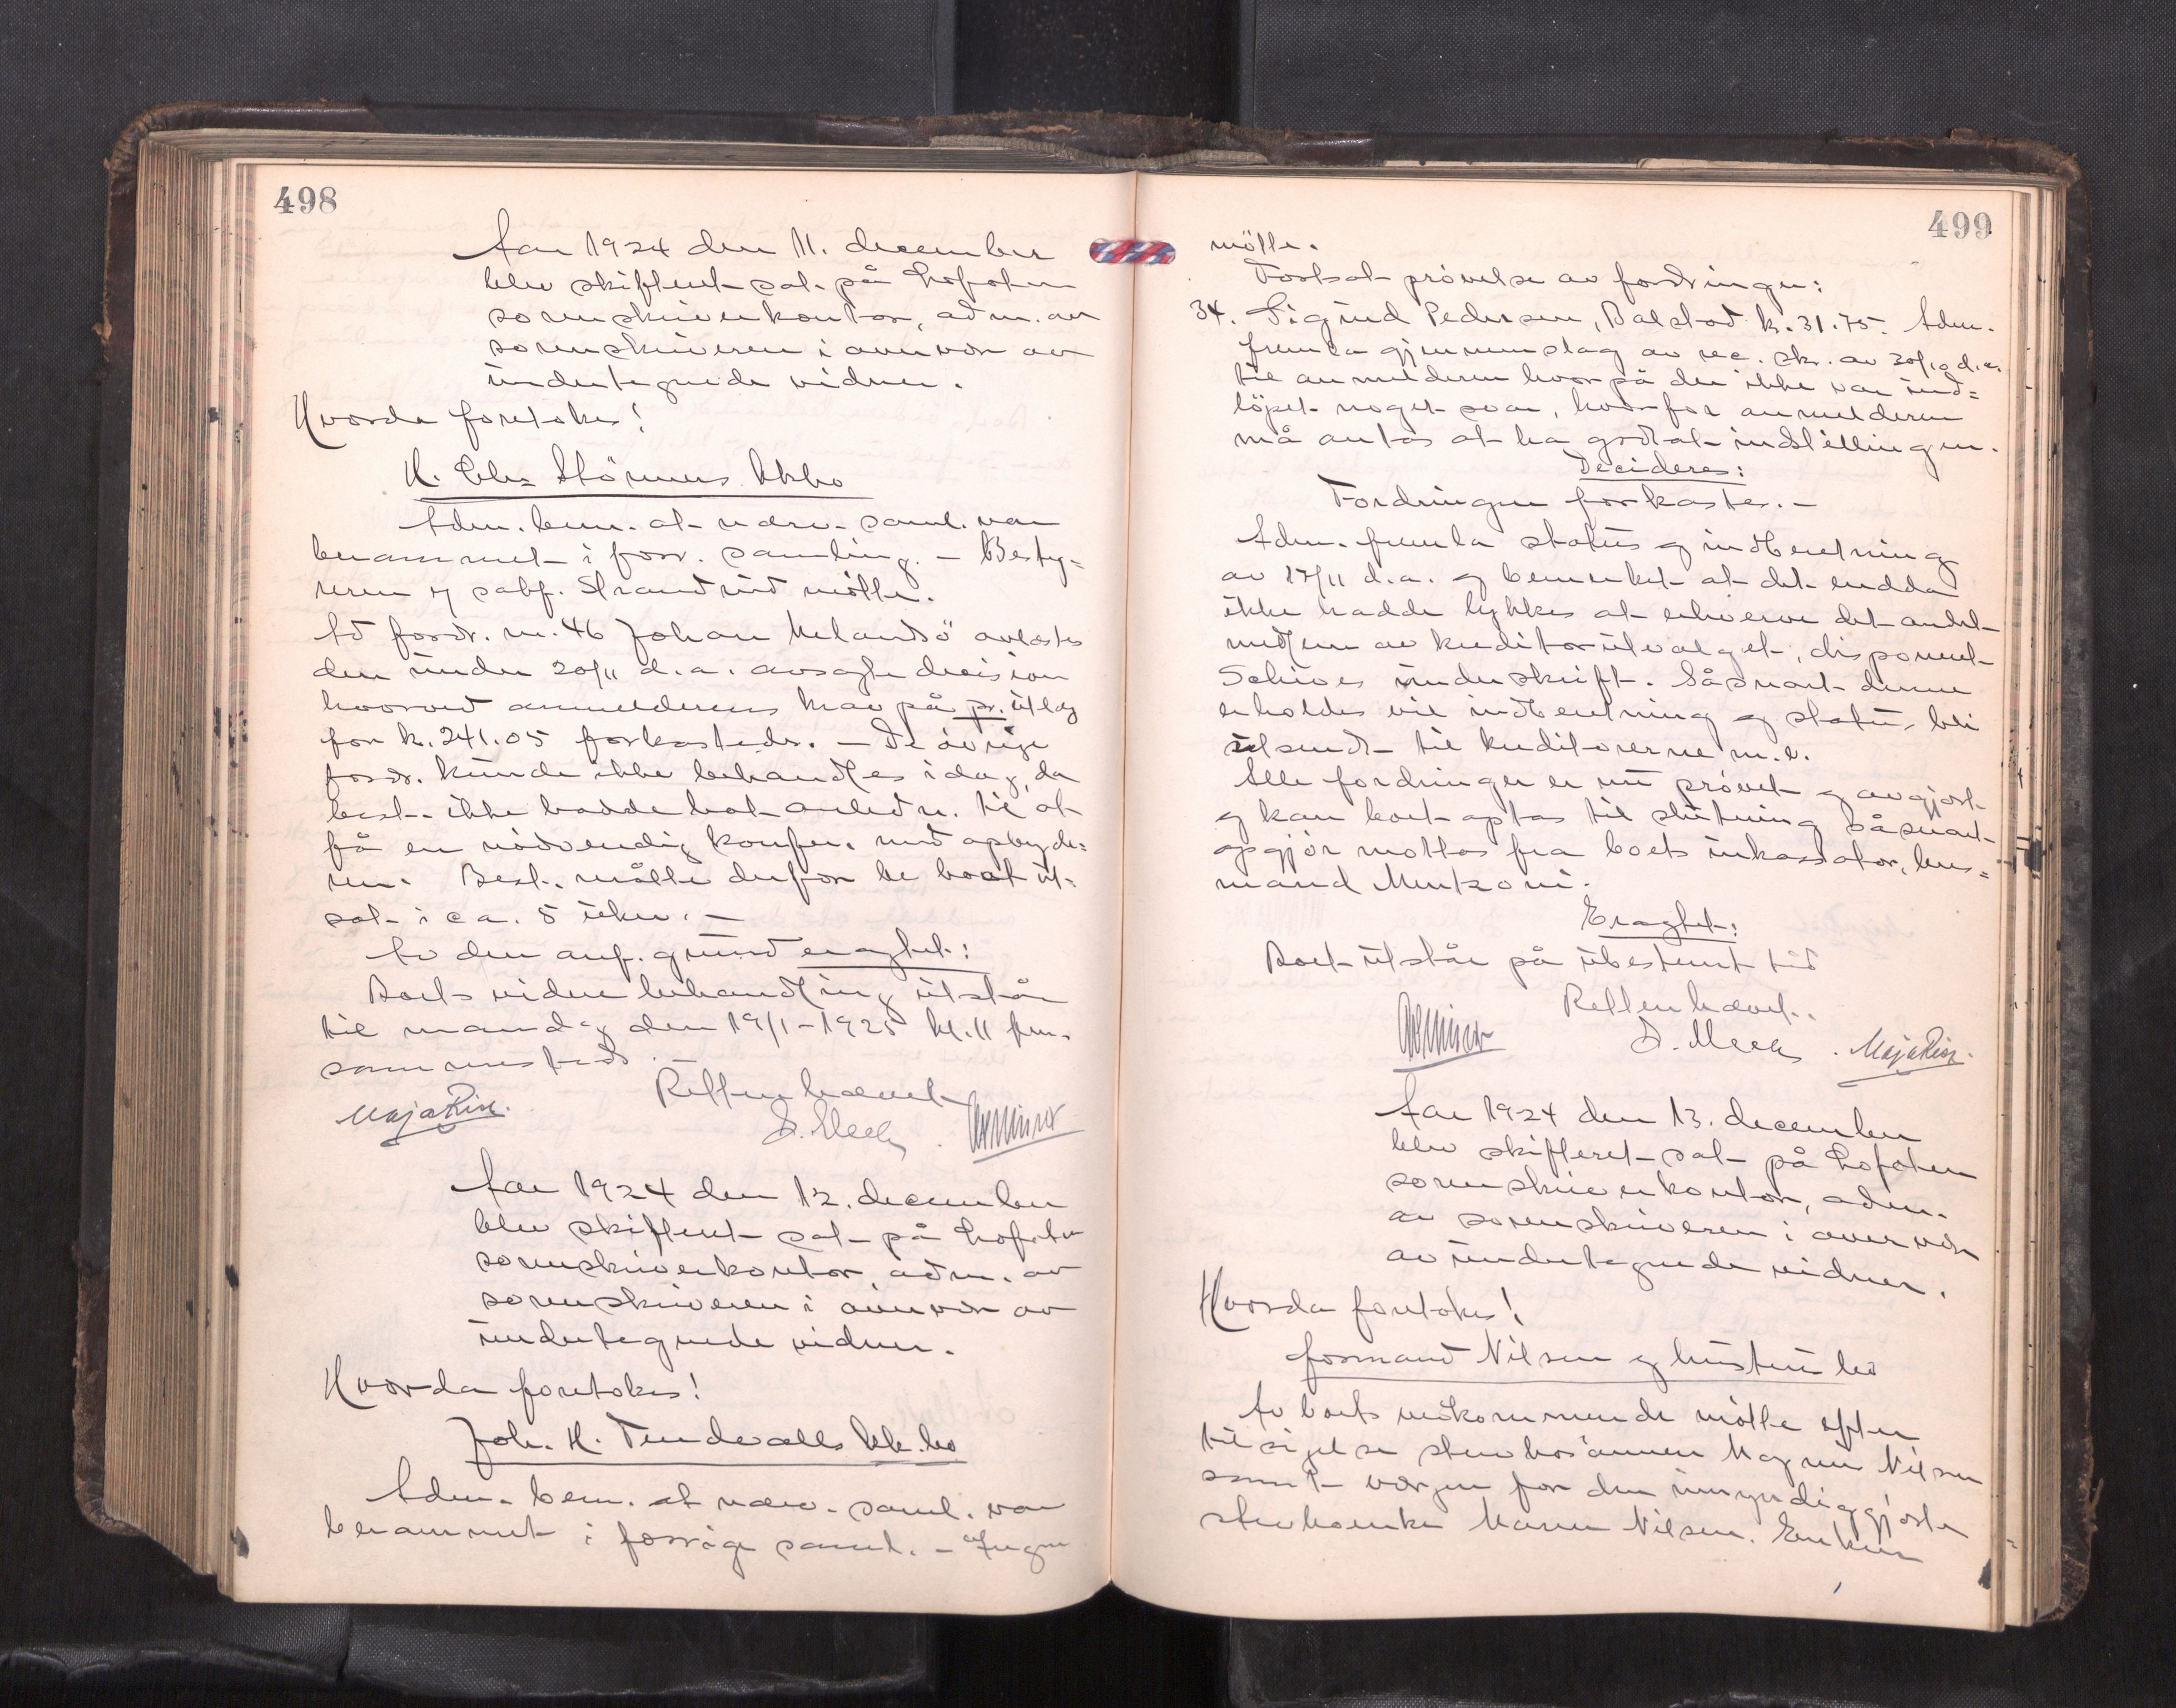 498
Aar 1924 den 11. december
blev skifteret sat på Lofoten
sorenskriverkontor, adm. av
sorenskriveren i overvær av
undertegnede vidner.
Hvorda foretokes!
H. Chr. Störmers kkbo
Adm. bem. at nærv. saml. var
berammet i forr. samling. – Besty=
reren og sakf. Strandrud mötte.
Ad fordr. nr. 46 Johan Melandsö avlæstes
den under 20/11 d.a. avsagte decision
hvorved anmelderens krav på pr. utlæg
for kr. 241.05 forkastedes. – De övrige
fordr. kunde ikke behandles idag, da
best. ikke hadde hat anledn. til at
få en nödvendig konfer. med opbyde=
ren. Best. måtte derfor be boet ut=
sat i ca. 5 uker. –
Av den anf. grund eragtet:
Boets videre behandling utstår
til mandag den 19/1–1925 kl. 11 fm.
sammesteds. –
Retten hævet
Maja Risz.
34. Aar 1924 den 12. december
blev skifteret sat på Lofoten
sorenskriverkontor, adm. av
sorenskriveren i overvær av
undertegnede vidner.
Hvorda foretokes!
Joh. H. Tendevalls kk.bo
Adm. bem. at nærv. saml. var
berammet i forrige saml. – Ingen
499
mötte.
Fortsat prövelse av fordringer:
34. Sigurd Pedersen, Balstad kr. 31.75. Adm.
fremla gjennemslag av rec. skr. av 30/10 d.a.
til anmelderen hvorpå der ikke var ind=
löpet noget svar, hvorfor anmelderen
må antas at ha godtat indstillingen.
Decideres:
Fordringen forkastes. –
Adm. fremla status og indberetning
av 17/11 d.a. og bemerket at det endda
ikke hadde lykkes at erhverve det andet
medlem av kreditorutvalget, disponent
Schives underskrift. Såsnart denne
erholdes vil indberetning og status bli
utsendt til kreditorerne m.v.
Alle fordringer er nu prövet og avgjort
og kan boet optas til slutning såsnart
opgjör mottas fra boets inkassator, lens=
mand
Eragtet:
Boet utstår på ubestemt tid
Retten hævet.
Maja Risz.
Aar 1924 den 13. december
blev skifteret sat på Lofoten
sorenskriverkontor, adm.
av sorenskriveren i overvær
av undertegnede vidner.
Hvorda foretokes!
Formand Nilsen og hustru bo
Av boets vedkommende mötte efter
tilsigelse stervbosönnen Magnus Nilsen
samt værgen for den umyndiggjorte
stervboenke Maren Nilsen. Enken